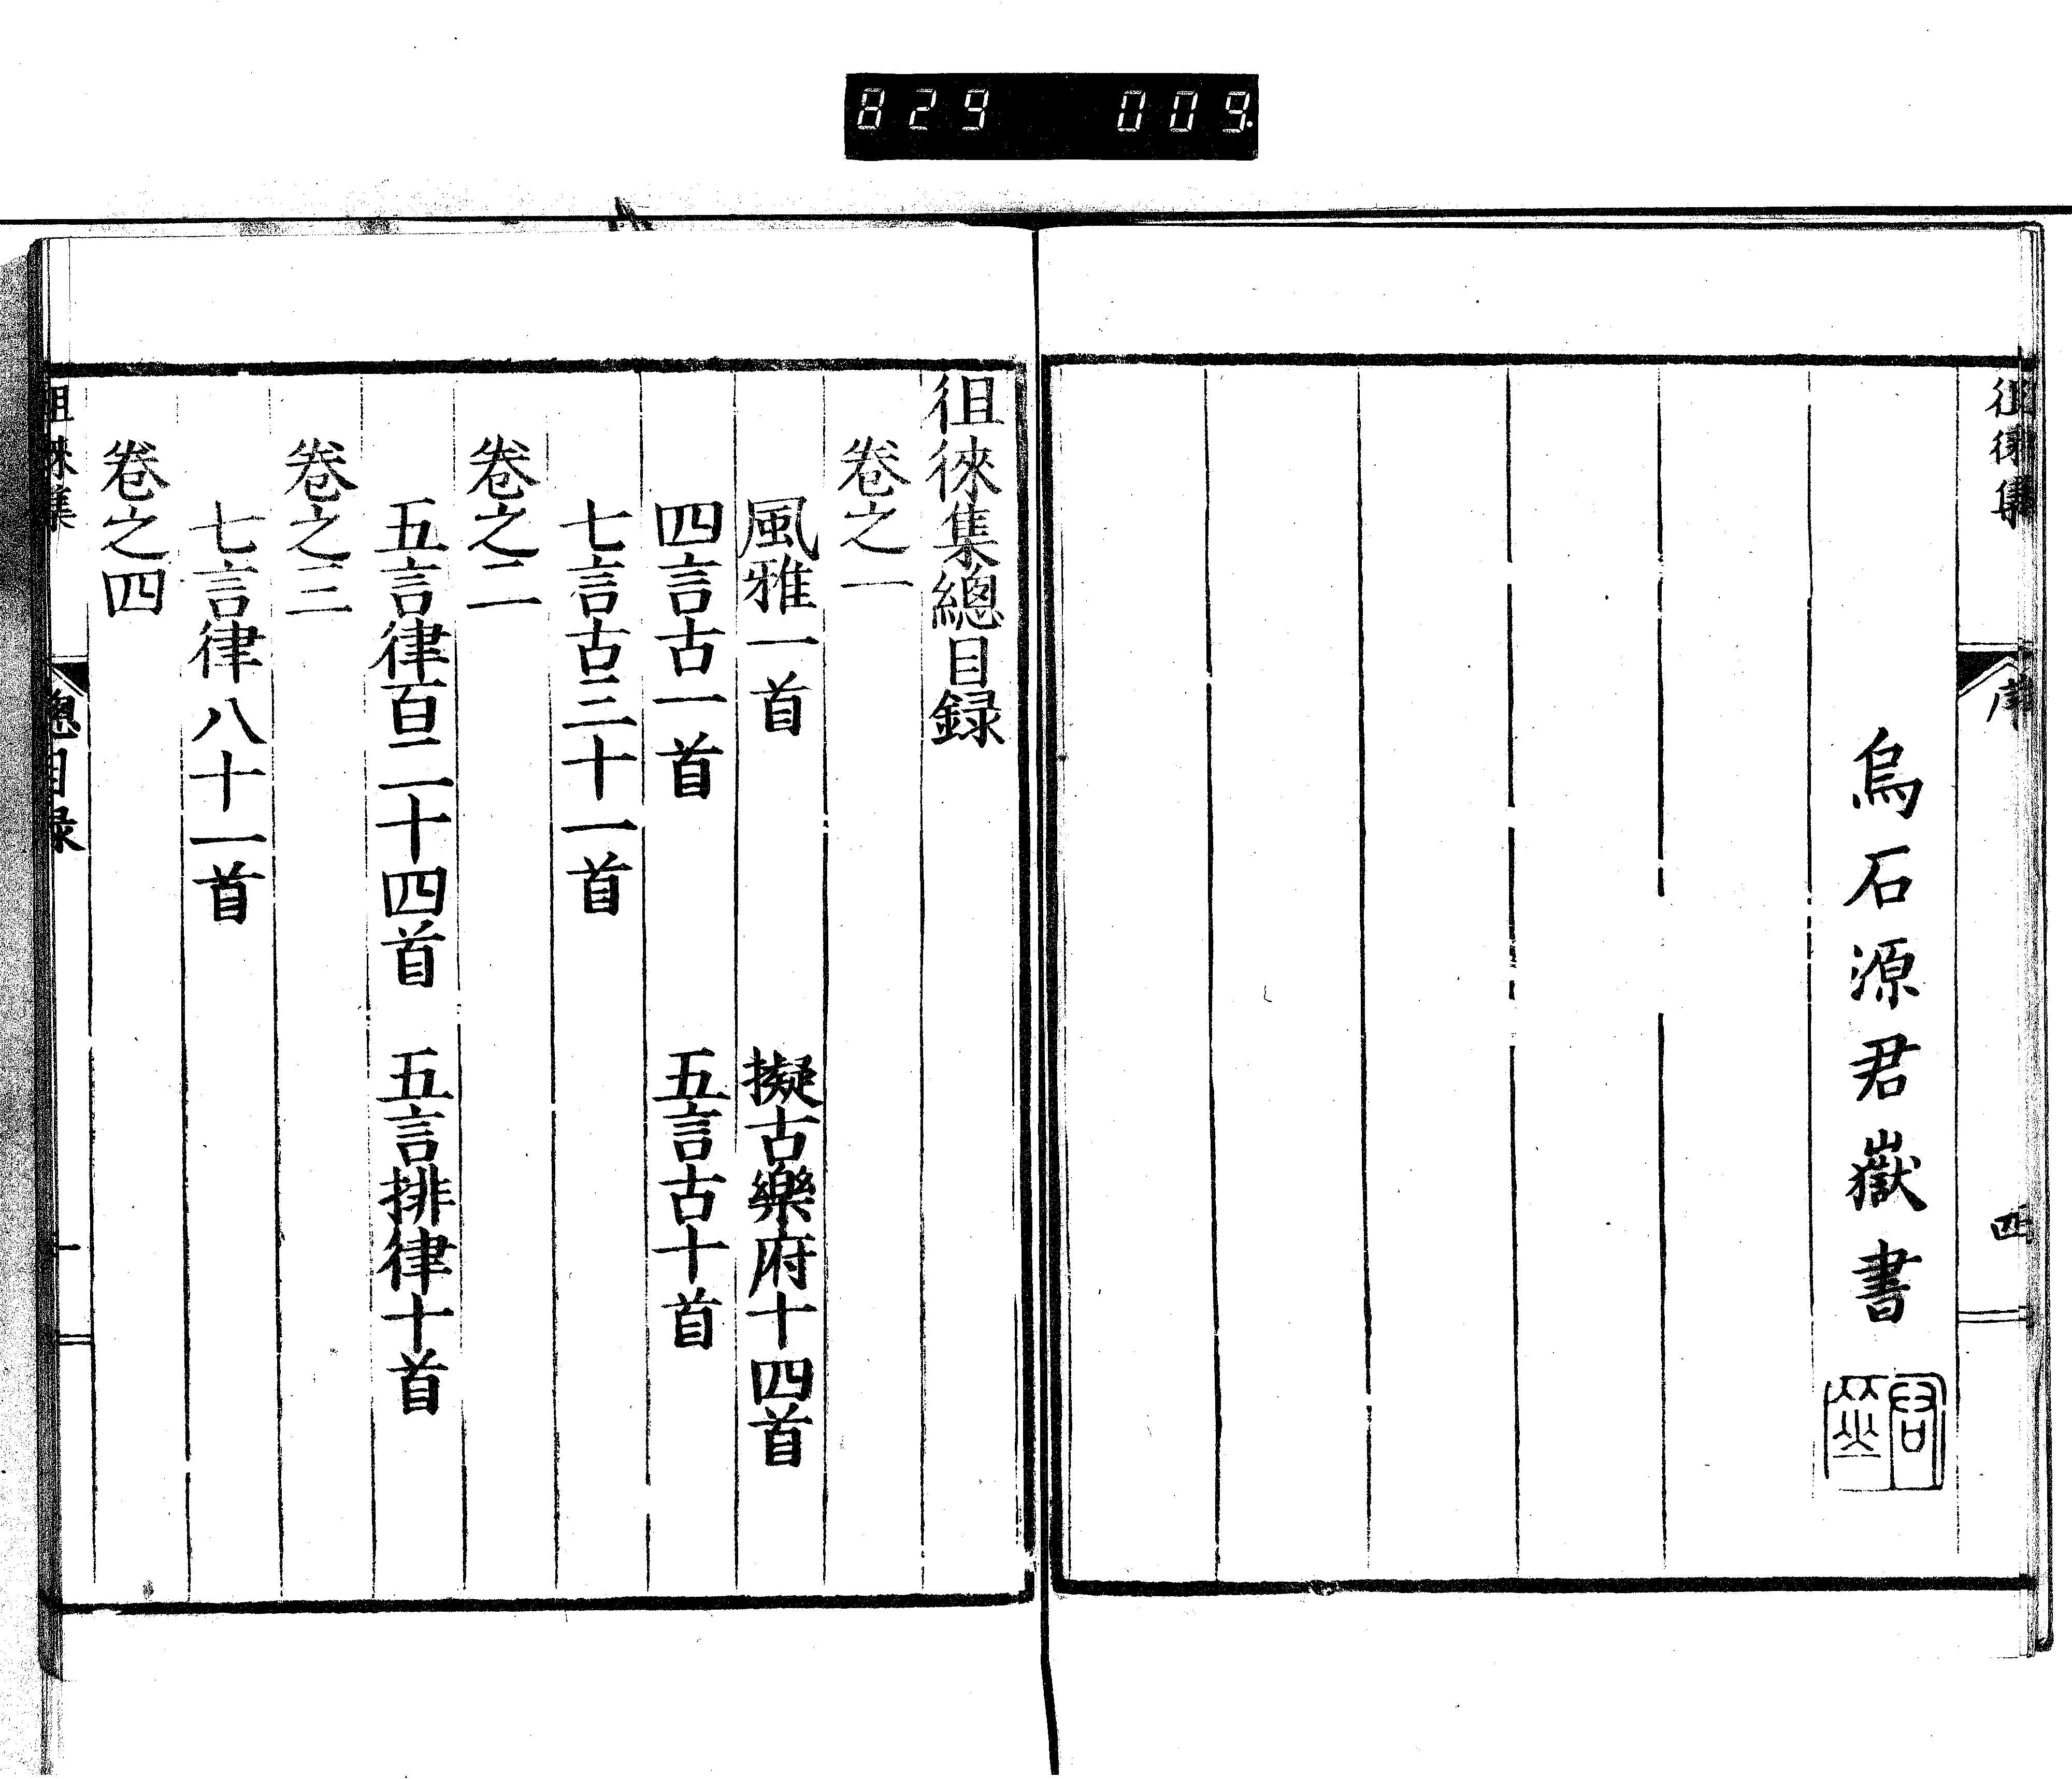 829 009.
徂徠集
序
四
烏石源君嶽書
徂徠集總目録
卷之一
風雅一首 擬古樂府十四首
四言古一首 五言古十首
七言古三十一首
卷之二
五言律百二十四首 五言排律十首
卷之三
七言律八十一首
卷之四
徂徠集
總目録
一